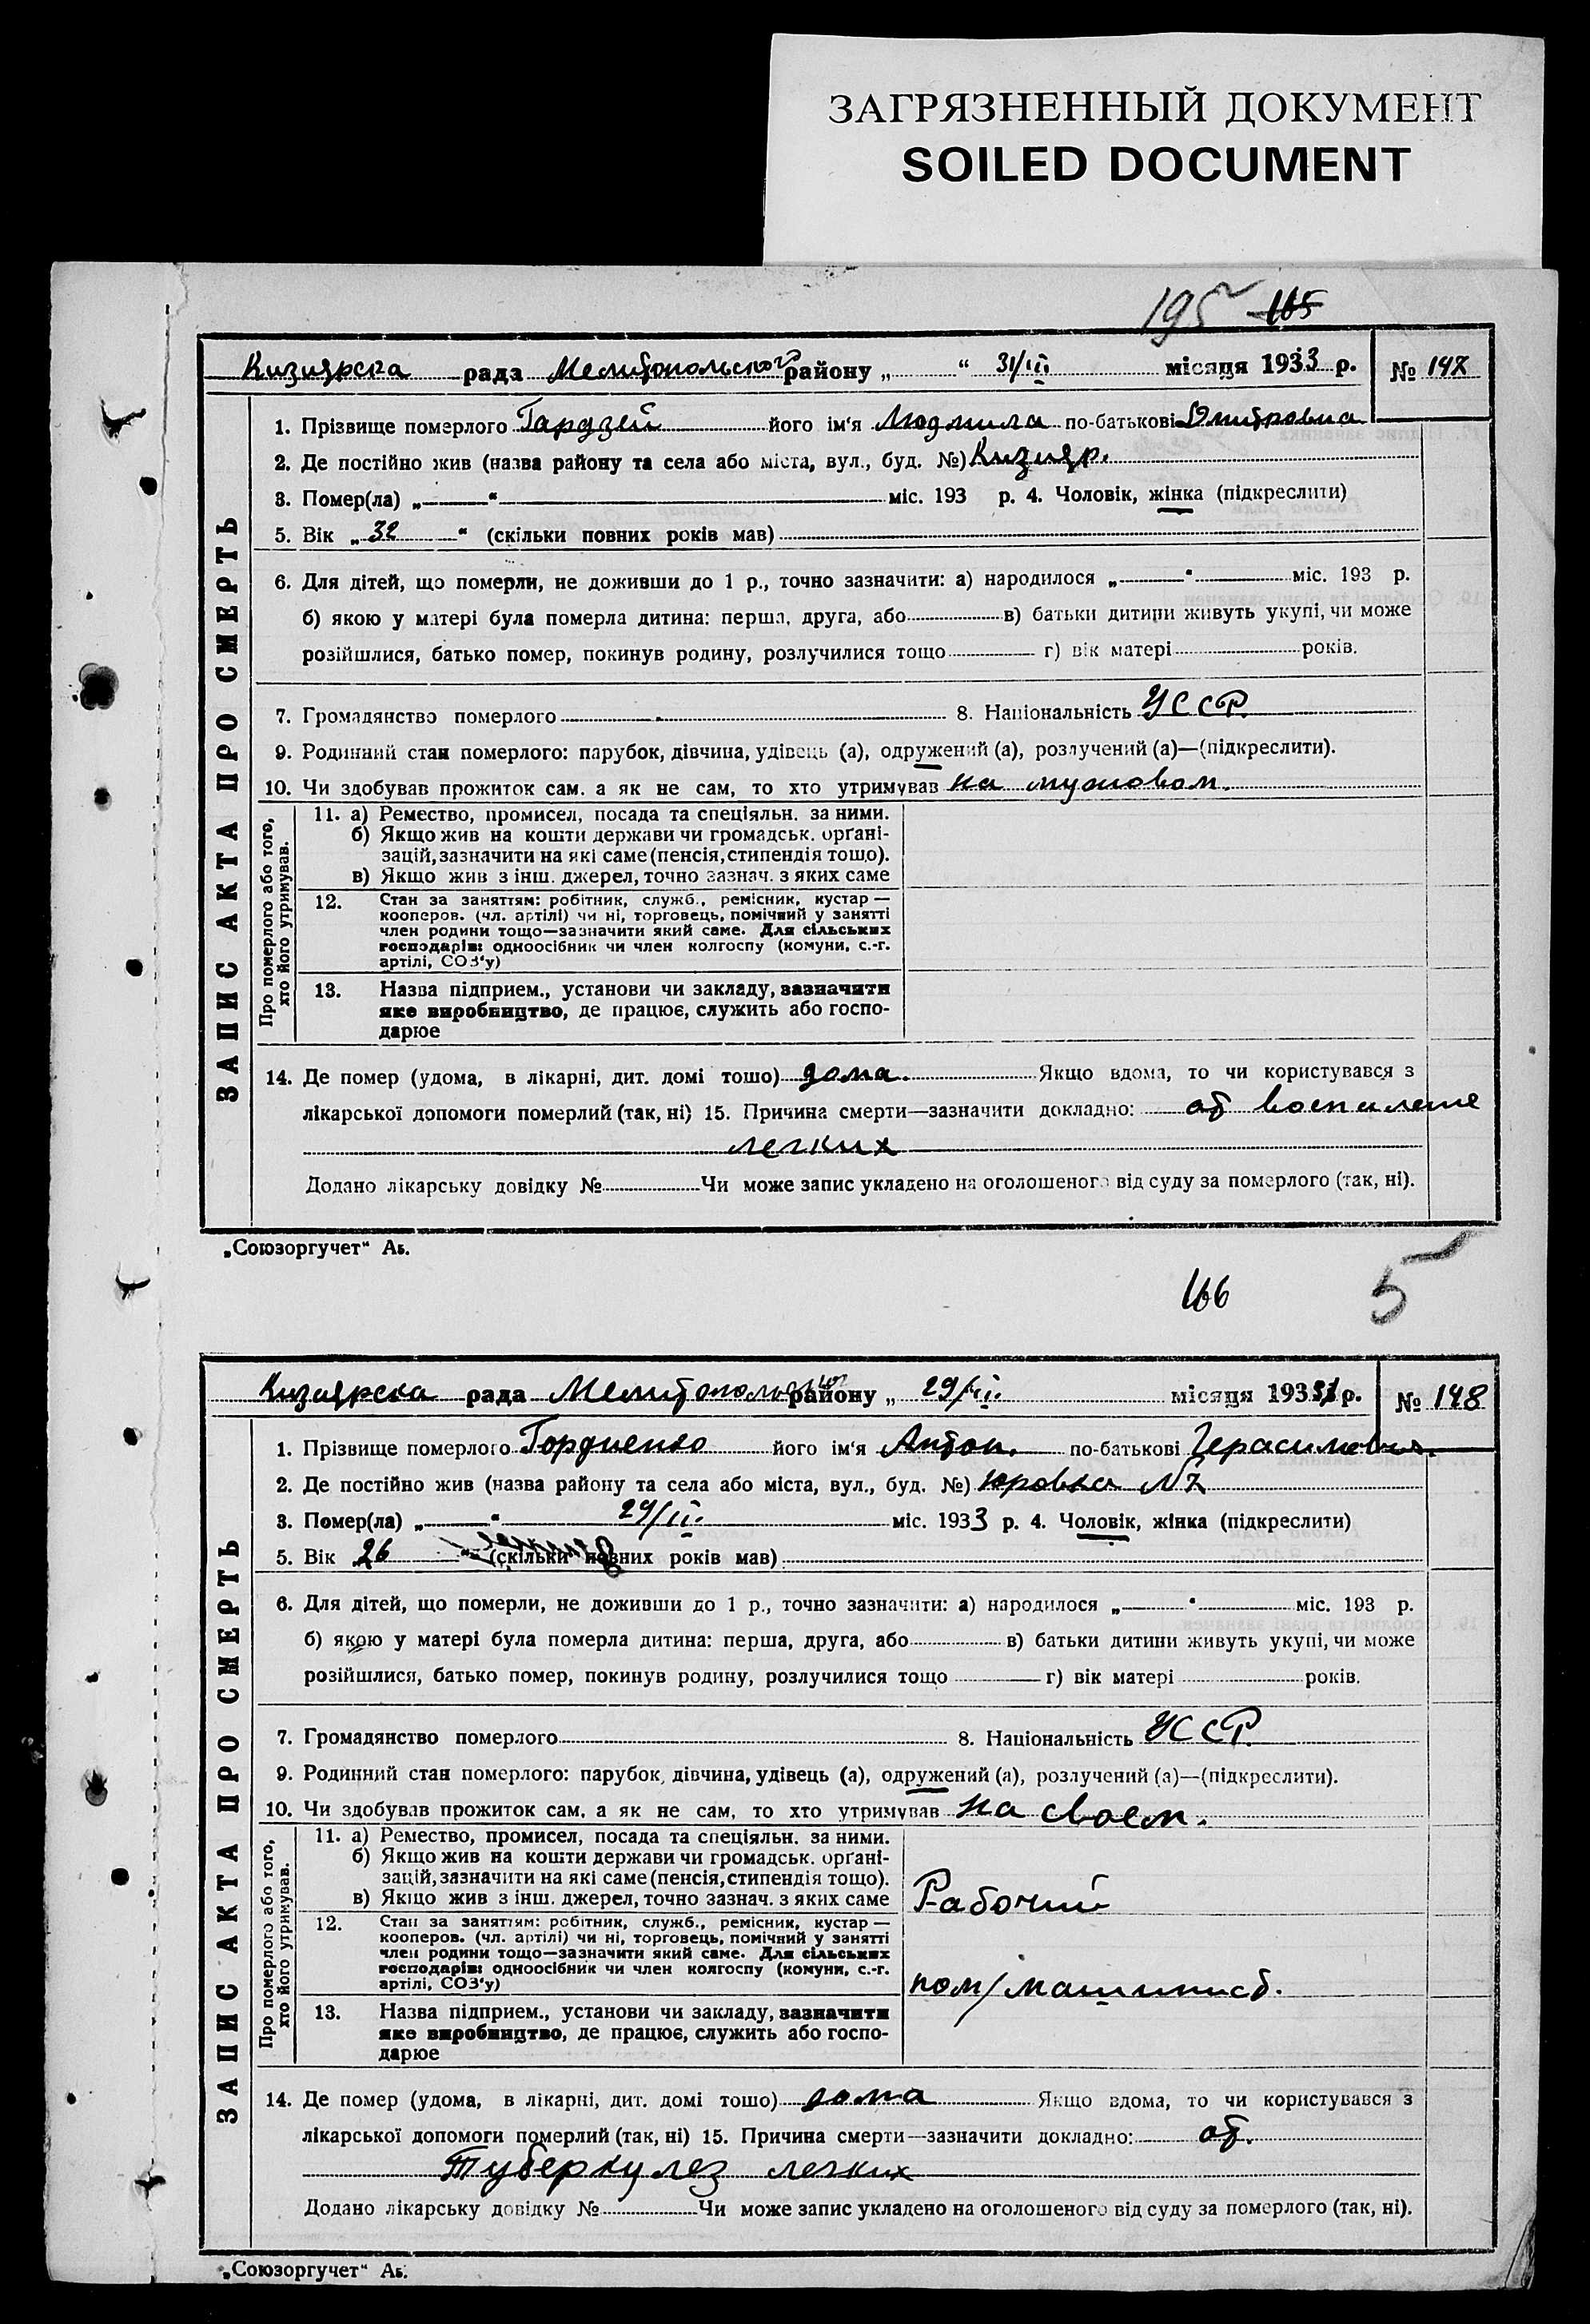 ЗАГРЯЗНЕННЫЙ ДОКУМЕНТ
SOILED DOCUMENT
195 165
Кизиярска рада Мелитопольского району „ “ 31/III місяця 1933 р. № 147
ЗАПИС АКТА ПРО СМЕРТЬ
1. Прізвище померлого Гардзей його ім'я Людмила по-батькові Дмитровна
2. Де постійно жив (назва району та села або міста, вул., буд. №) Кизияр.
3. Помер(ла) „ “ міс. 193 р. 4. Чоловік, жінка (підкреслити)
5. Вік „32 “ (скільки повних років мав)
6. Для дітей, що померли, не доживши до 1 р., точно зазначити: а) народилося „ “ міс. 193 р.
б) якою у матері була померла дитина: перша, друга, або в) батьки дитини живуть укупі, чи може
розійшлися, батько помер, покинув родину, розлучилися тощо г) вік матері років.
7. Громадянство померлого 8. Національність УССР.
9. Родинний стан померлого: парубок, дівчина, удівець (а), одружений (а), розлучений (а)—(підкреслити).
10. Чи здобував прожиток сам, а як не сам, то хто утримував на мужовом.
Про померлого або того,
хто його утримував.
11. а) Ремество, промисел, посада та спеціяльн. за ними.
б) Якщо жив на кошти держави чи громадськ. орґані-
зацій, зазначити на які саме (пенсія, стипендія тощо).
в) Якщо жив з інш. джерел, точно зазнач. з яких саме
12. Стан за заняттям: робітник, служб., ремісник, кустар —
кооперов. (чл. артілі) чи ні, торговець, помічний у занятті
член родини тощо—зазначити який саме. Для сільських
господарів: одноосібник чи член колгоспу (комуни, с.-г.
артілі, СОЗ'у)
13. Назва підприєм., установи чи закладу, зазначити
яке виробництво, де працює, служить або госпо-
дарює
14. Де помер (удома, в лікарні, дит. домі тощо) дома. Якщо вдома, то чи користувався з
лікарської допомоги померлий (так, ні) 15. Причина смерти—зазначити докладно: от воспаление
легких
Додано лікарську довідку № Чи може запис укладено на оголошеного від суду за померлого (так, ні).
„Союзоргучет“ Аь.
166 5
Кизиярска рада Мелитопольског району „ 29/III. місяця 193 р. № 148
ЗАПИС АКТА ПРО СМЕРТЬ
1. Прізвище померлого Гордиенко його ім'я Антон. по-батькові Герасимович.
2. Де постійно жив (назва району та села або міста, вул., буд. №) Юровка №7
3. Помер(ла) „ “ 29/III. міс. 1933 р. 4. Чоловік, жінка (підкреслити)
5. Вік 26 “ (скільки повних років мав)
6. Для дітей, що померли, не доживши до 1 р., точно зазначити: а) народилося „ “ міс. 193 р.
б) якою у матері була померла дитина: перша, друга, або в) батьки дитини живуть укупі, чи може
розійшлися, батько помер, покинув родину, розлучилися тощо г) вік матері років.
7. Громадянство померлого 8. Національність УССР.
9. Родинний стан померлого: парубок, дівчина, удівець (а), одружений (а), розлучений (а)—(підкреслити).
10. Чи здобував прожиток сам, а як не сам, то хто утримував на своем.
Про померлого або того,
хто його утримував.
11. а) Ремество, промисел, посада та спеціяльн. за ними.
б) Якщо жив на кошти держави чи громадськ. орґані-
зацій, зазначити на які саме (пенсія, стипендія тощо).
в) Якщо жив з інш. джерел, точно зазнач. з яких саме Рабочий
12. Стан за заняттям: робітник, служб., ремісник, кустар —
кооперов. (чл. артілі) чи ні, торговець, помічний у занятті
член родини тощо—зазначити який саме. Для сільських
господарів: одноосібник чи член колгоспу (комуни, с.-г.
артілі, СОЗ'у) пом/машинист.
13. Назва підприєм., установи чи закладу, зазначити
яке виробництво, де працює, служить або госпо-
дарює
14. Де помер (удома, в лікарні, дит. домі тощо) дома Якщо вдома, то чи користувався з
лікарської допомоги померлий (так, ні) 15. Причина смерти—зазначити докладно: от.
Туберкулез легких
Додано лікарську довідку № Чи може запис укладено на оголошеного від суду за померлого (так, ні).
„Союзоргучет“ Аь.